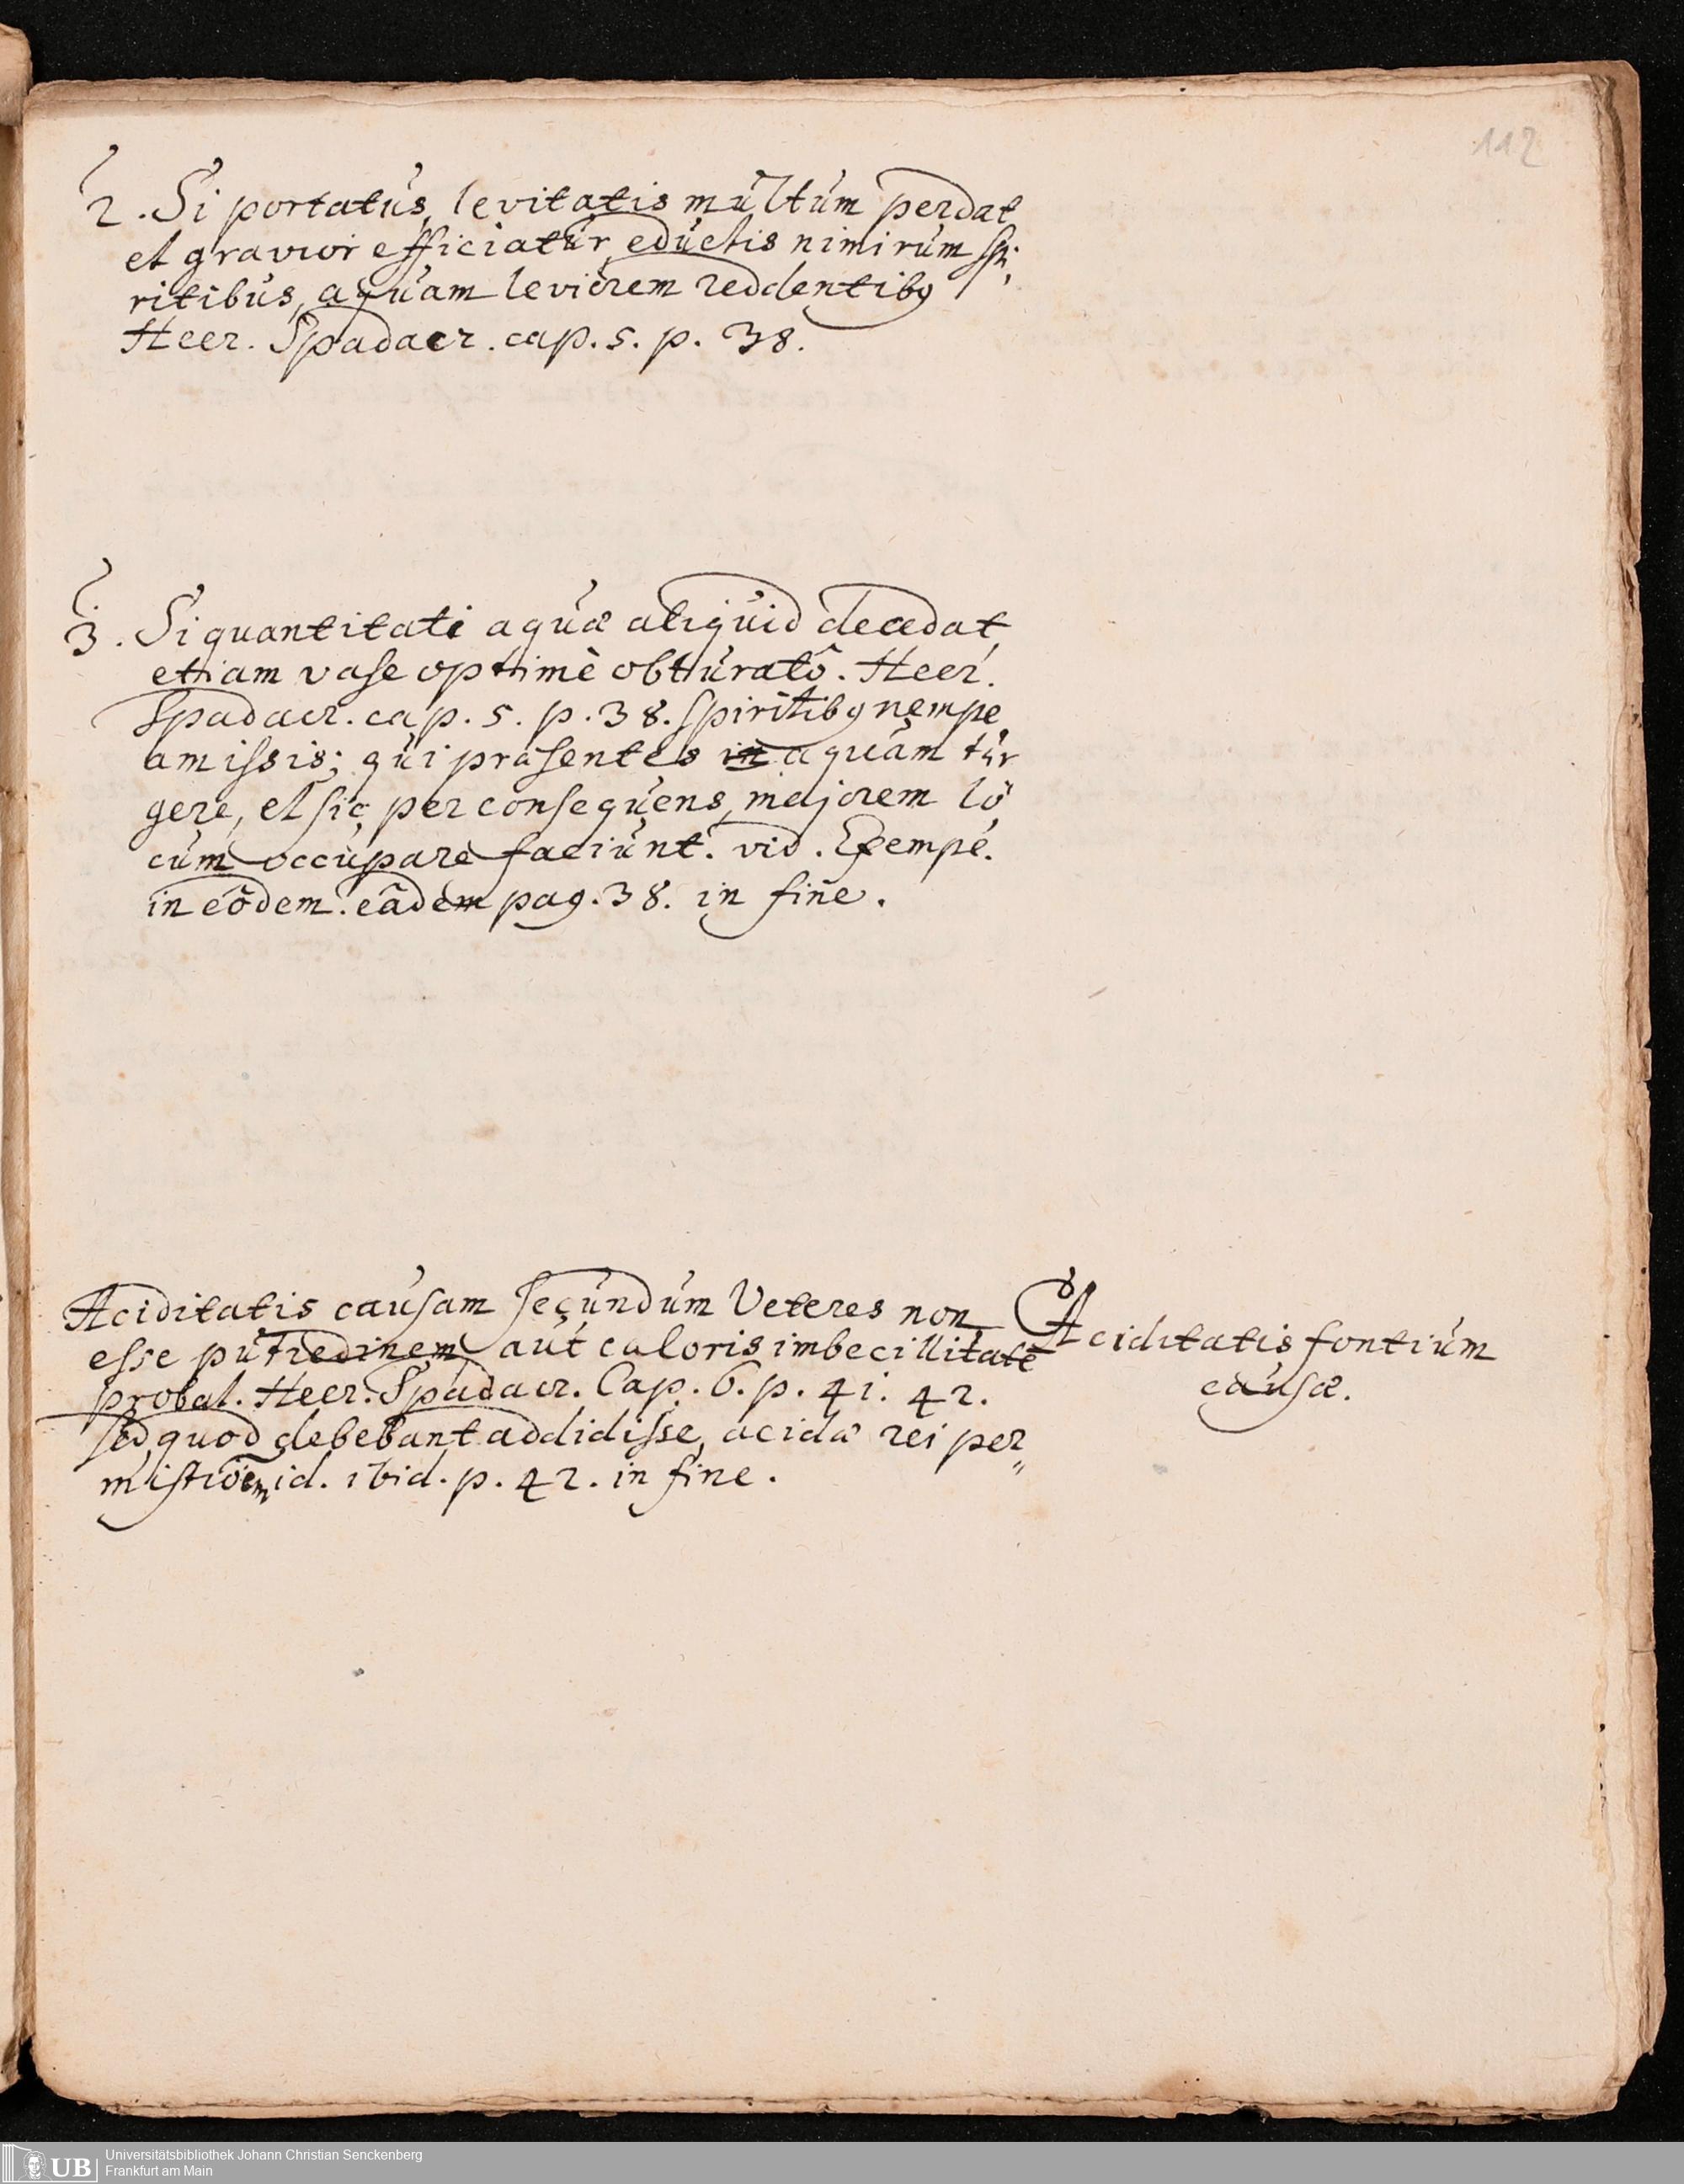 112
2. Si portatus, levitatis multum perdat
et gravior efficiatur, eductis nimirum spi,
ritibus, aquam leviorem reddentibq
Heer. Spadacr. cap. 5. p. 38.
3. Si quantitati aquæ aliquid decedat,
etiam vase optimè obturatô. Heer.
Spadacr. cap. 5. p. 38. spiritibq nempe
amissis; qui præsentes in aquam tur
gere, et sic per consequens, majorem lo
cum occupare faciunt. vid. Exemp.
in eôdem. eâdem pag. 38. in fine.
Aciditatis causam secundum Veteres non
esse putredinem aut caloris imbecillitatē
probat. Heer. Spadacr. Cap. 6. p. 41. 42.
sed quod debebant addidisse, acidæ rei per„
mistiōem id. ibid. p. 42. in fine.
Aciditatis fontium
causæ.
UB Universitätsbibliothek Johann Christian Senckenberg
Frankfurt am Main